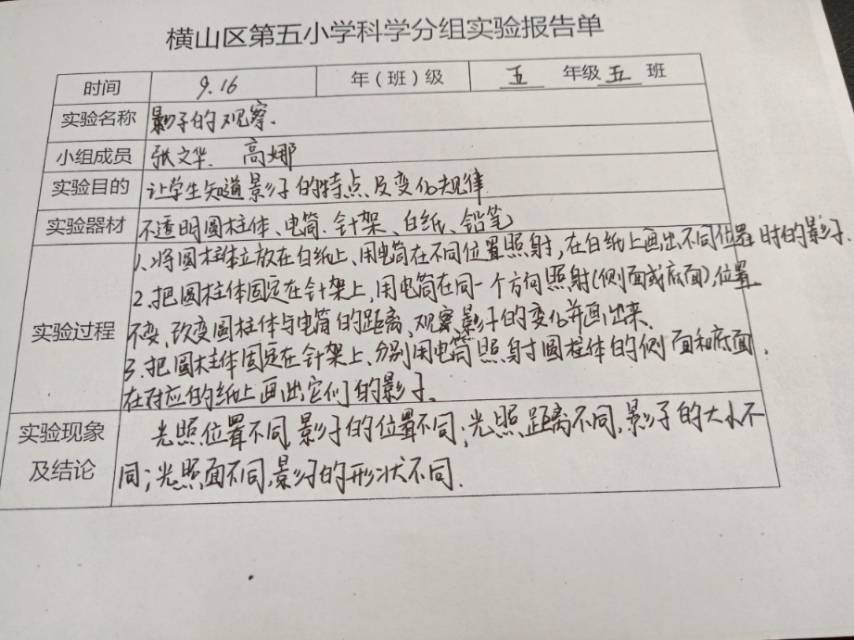 横山区第五小学科学分组实验报告单
时间 9.16 年(班)级 五 年级 五 班
实验名称 影子的观察.
小组成员 张文华. 高娜
实验目的 让学生知道影子的特点及变化规律
实验器材 不透明圆柱体、电筒.针架、白纸、铅笔
1、将圆柱体立放在白纸上、用电筒在不同位置照射,在白纸上画出不同位置时的影子.
2.把圆柱体固定在针架上,用电筒在同一个方向照射(侧面或底面),位置
实验过程 不变,改变圆柱体与电筒的距离、观察影子的变化并画出来、
3.把圆柱体固定在针架上、分别用电筒照射圆柱体的侧面和底面,
在对应的纸上画出它们的影子.
实验现象 光照位置不同,影子的位置不同;光照距离不同,影子的大小不
及结论 同;光照面不同,影子的形状不同.